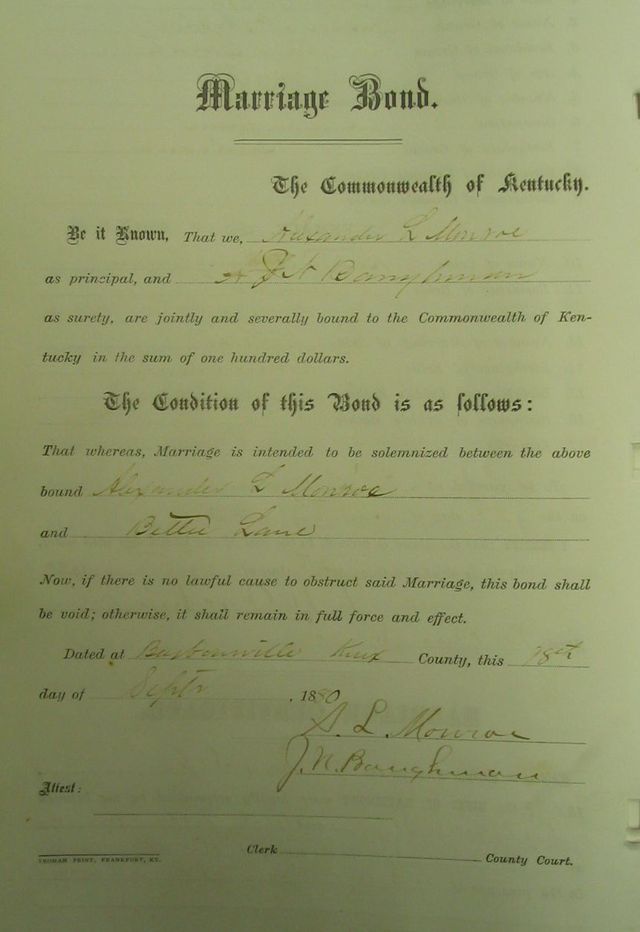 Marriage Bond.
The Commonwealth of Kentucky.
Be it Known, That we, Alexander L Monroe
as principal, and J N Baughman
as surety, are jointly and severally bound to the Commonwealth of Ken-
tucky in the sum of one hundred dollars.
The Condition of this Bond is as follows:
That whereas, Marriage is intended to be solemnized between the above
bound Alexander L Monroe
and Bettie Lane
Now, if there is no lawful cause to obstruct said Marriage, this bond shall
be void; otherwise, it shall remain in full force and effect.
Dated at Barbourville Knox County, this
day of Septr, 1880
A. L. Monroe
J. N. Baughman
Attest:
Clerk County Court.
YEOMAN PRINT, FRANKFORT, KY.